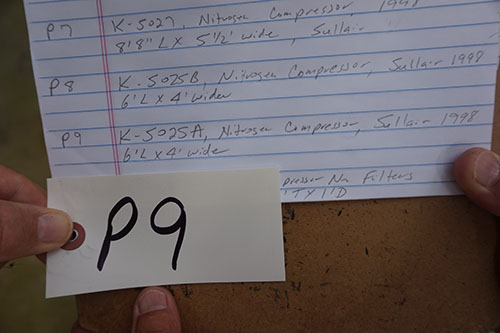 P7 K-5027, Nitrogen Compressor 1998
8'8" L X 5 1/2' wide, Sullair
P8 K-5025B, Nitrogen Compressor, Sullair 1998
6'L x 4' wide
P9 K-5025A, Nitrogen Compressor, Sullair 1998
6'L x 4' wide
pressor N2 Filters
'T X 1'D
P9